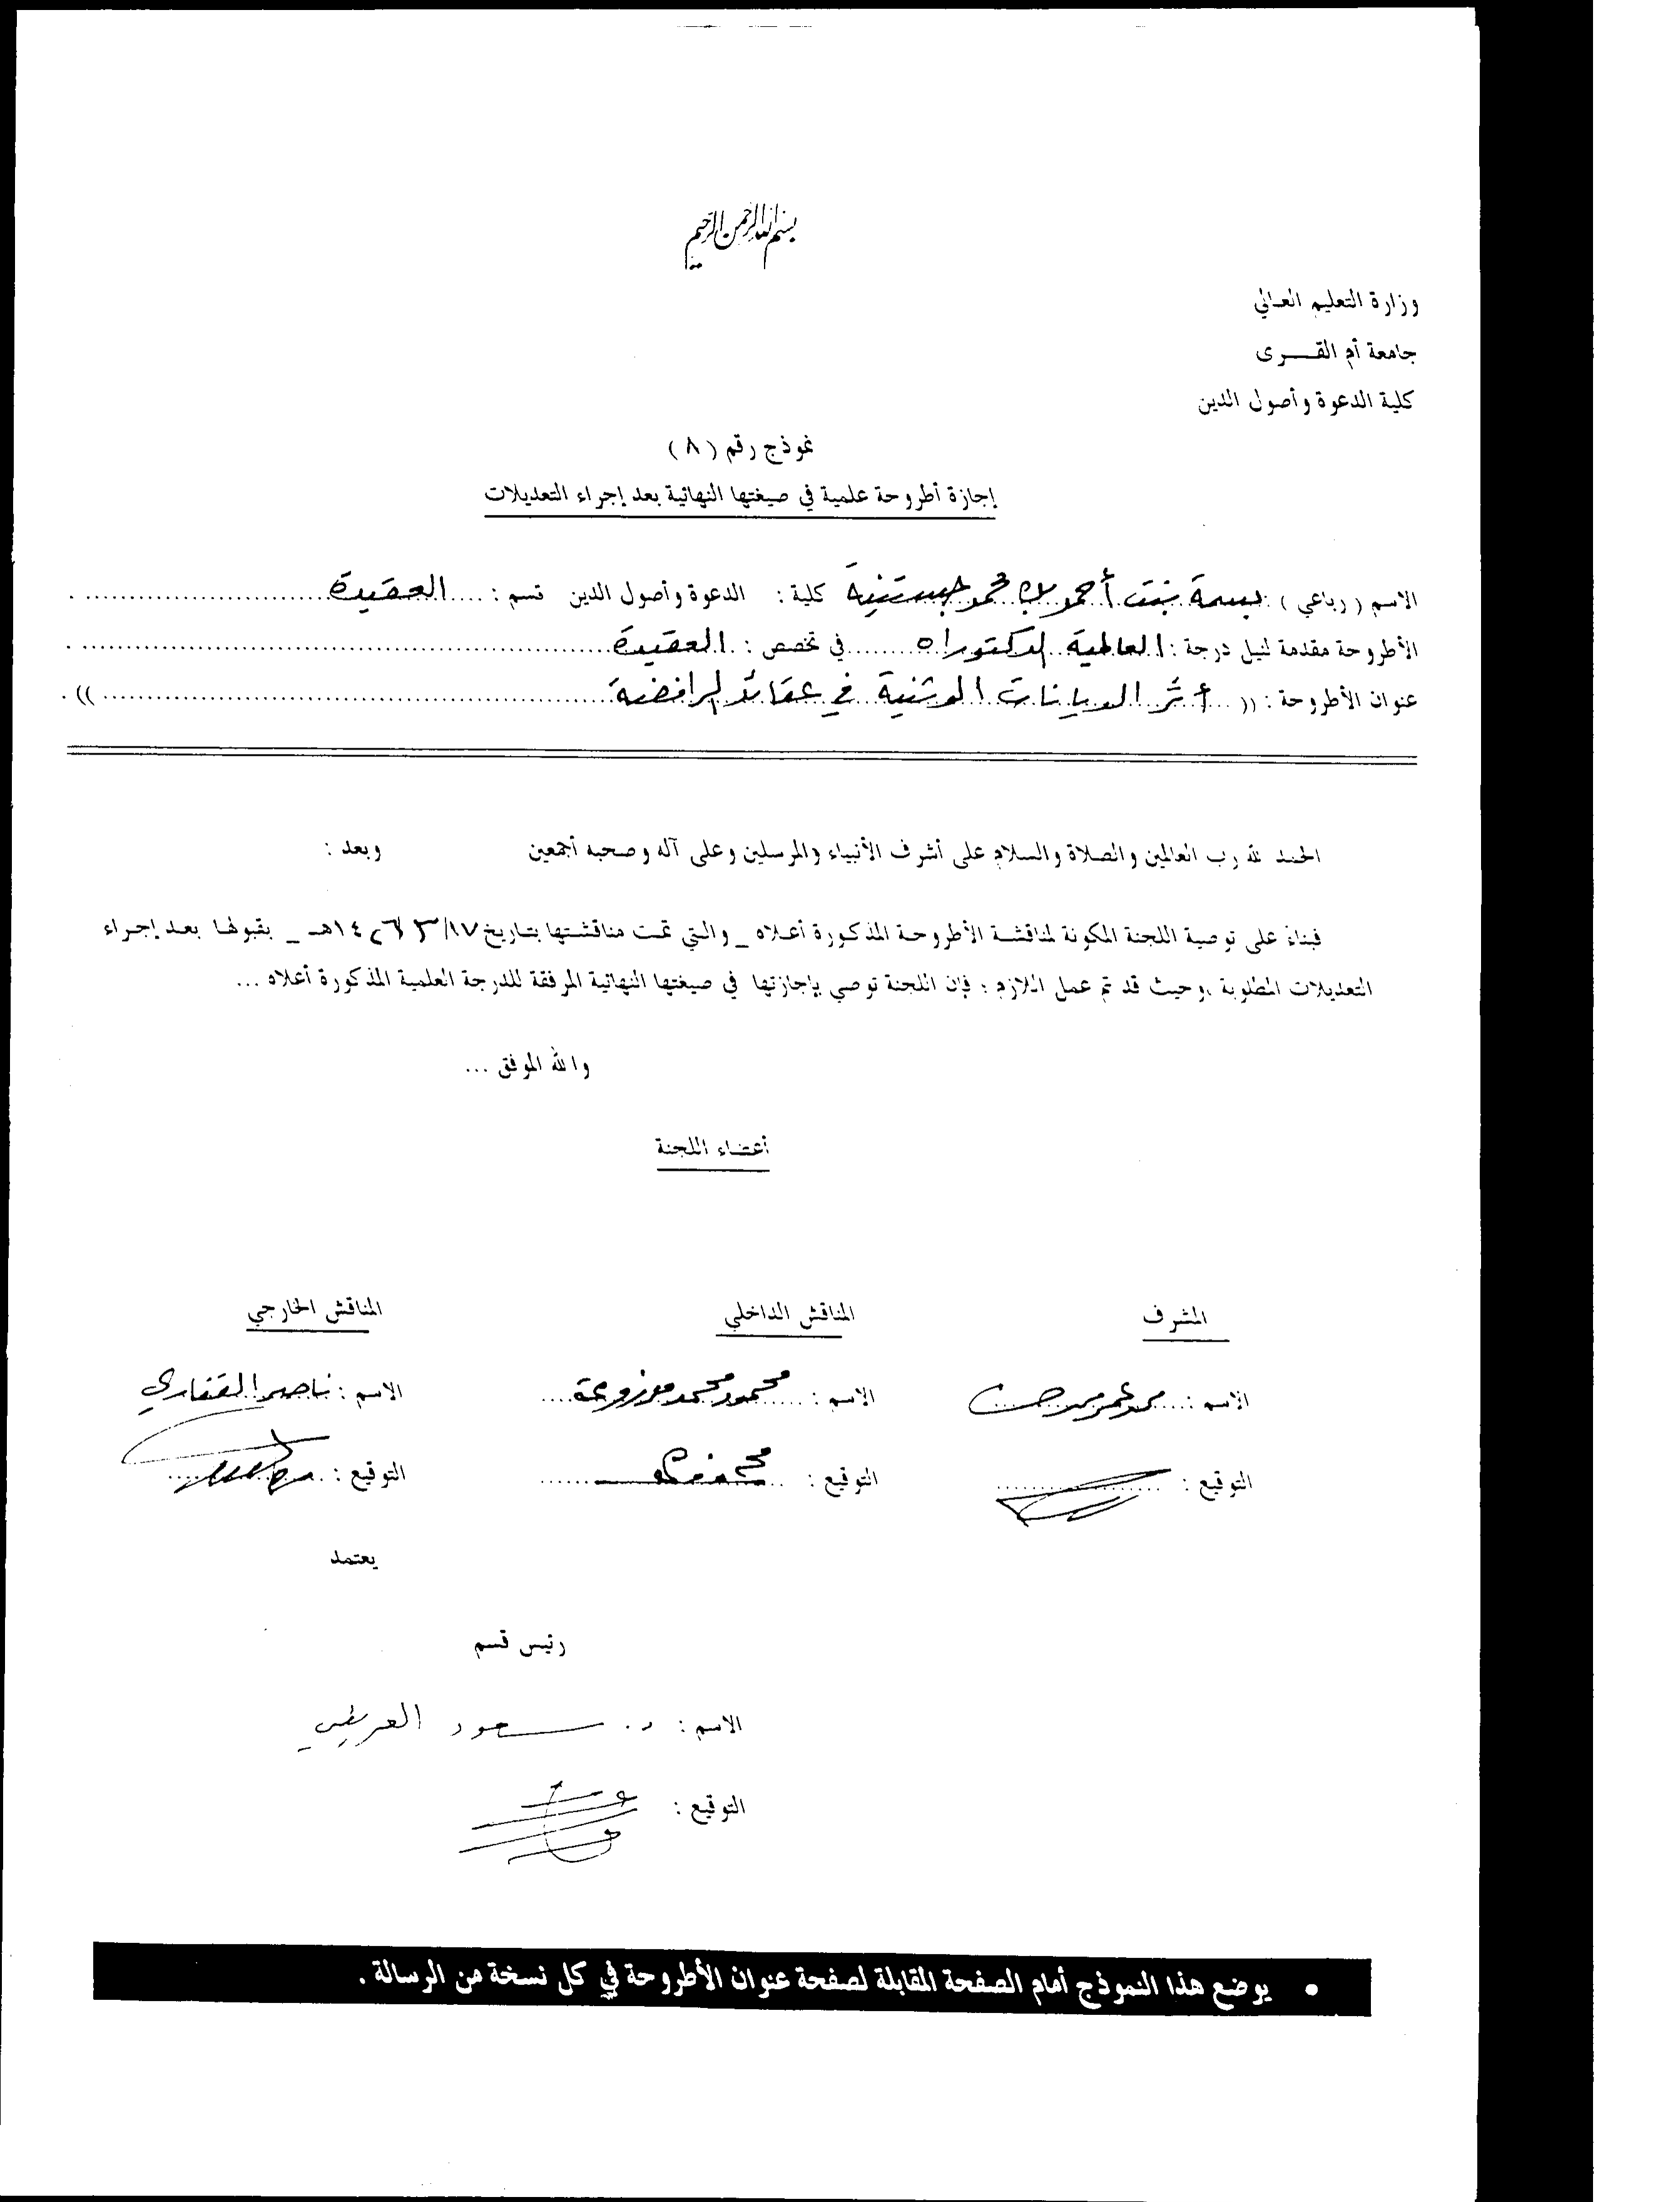 بسم الله الرحمن الرحيم
وزارة التعليم العالي
جامعة أم القــــرى
كلية الدعوة وأصول الدين
نموذج رقم ( ٨ )
إجازة أطروحة علمية في صيغتها النهائية بعد إجراء التعديلات
الاسم ( رباعي ) : بسمة بنت أحمد محمد جستنية كلية : الدعوة وأصول الدين قسم : العقيدة
الأطروحة مقدمة لنيل درجة : العالمية الدكتوراه في تخصص : العقيدة
عنوان الأطروحة : (( أثر الديانات الوثنية في عقائد الرافضة )) .
الحمد لله رب العالمين والصلاة والسلام على أشرف الأنبياء والمرسلين وعلى آله وصحبه أجمعين وبعد :
فبناءً على توصية اللجنة المكونة لمناقشة الأطروحة المذكورة أعلاه _ والتي تمت مناقشتها بتاريخ ١٧/ ٣/ ١٤٢٦هـ _ بقبولها بعد إجراء
التعديلات المطلوبة ، وحيث قد تم عمل اللازم ؛ فإن اللجنة توصي بإجازتها في صيغتها النهائية المرفقة للدرجة العلمية المذكورة أعلاه ...
والله الموفق ...
أعضاء اللجنة
المشرف المناقش الداخلي المناقش الخارجي
الاسم : الاسم : محمود محمد مزروعة الاسم : ناصر القفاري
التوقيع : التوقيع : التوقيع :
يعتمد
رئيس قسم
الاسم : د . سعود العريفي
التوقيع :
• يوضع هذا النموذج أمام الصفحة المقابلة لصفحة عنوان الأطروحة في كل نسخة من الرسالة .